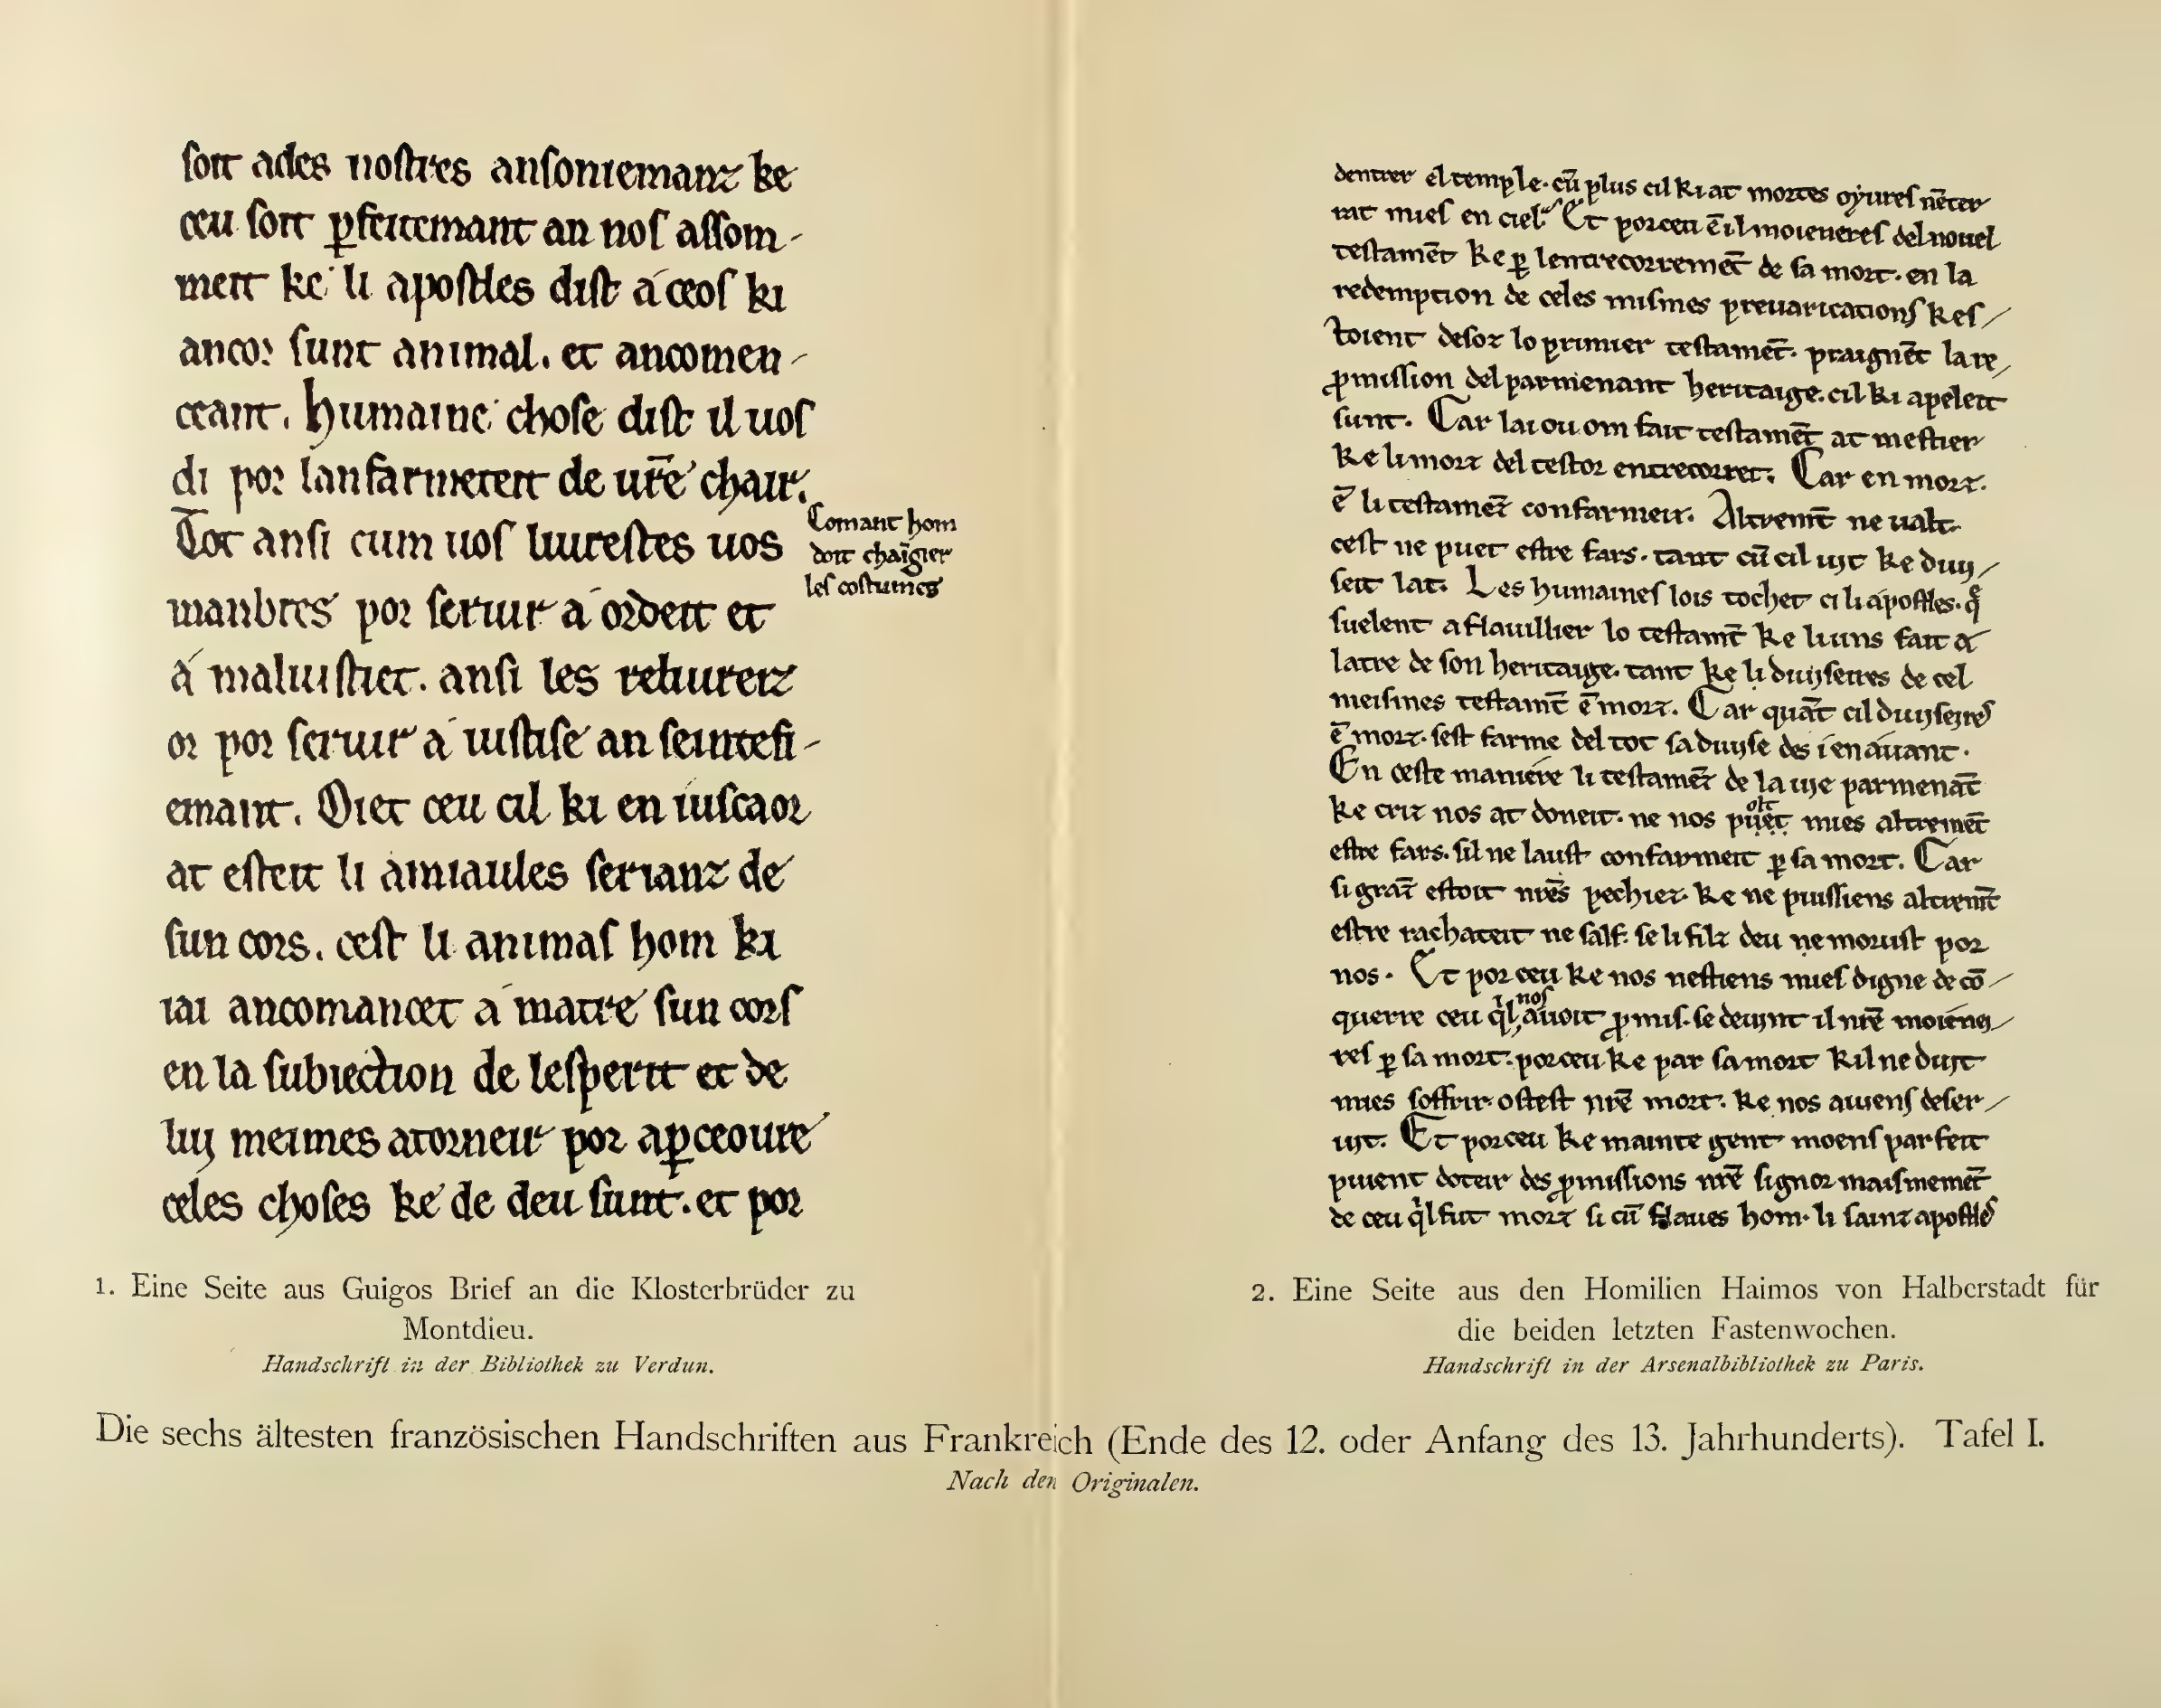 soit ades nostres ansoniemanz ke
ceu soit p̲feitemant an nos assom-
meit ke li apostles dist á ceos ki
ancor sunt animal. et ancomen-
ceant. Humaine chose dist il uos
di por lanfarmeteit de ur̄e chair.
Tot ansi cum uos liurestes uos
manbres por seruir á ordeit et
á maluistiet. ansi les reliurerz
or por seruir á iustise an seintefi-
emant. Oiet ceu cil ki en iuscaor
at esteit li amiaules serianz de
sun cors. cest li animas hom ki
iai ancomancet á matre sun cors
en la subiection de lesperit et de
luy meimes atorneir por ap̲ceoure
celes choses ke de deu sunt. et por
Comant hom
doit chāgier
les costumes
1. Eine Seite aus Guigos Brief an die Klosterbrüder zu
Montdieu.
Handschrift in der Bibliothek zu Verdun.
dentrer el temple. cū plus cil ki at mortes oyures nēter
rat mies en ciel. Et por ceu ē il moieneres del nouel
testamēt ke p̲ lentrecorremēt de sa mort. en la
redemption de celes mismes preuarications kes/
toient desoz lo primier testamēt. praignēt la re/
p̲mission del parmenant heritaige. cil ki apeleit
sunt. Car lai ou om fait testamēt at mestier
ke li mort del testor entrecorret. Car en mort.
ē li testamēt confarmeit. Altremēt ne ualt.
cest ne puet estre fars. tant cū cil uit ke duy/
seit lat. Les humaines lois tochet ci li apostles. q̄
suelent aflauillier lo testamt̄ ke li uns fait á
latre de son heritaige. tant ke li duyserres de cel
meismes testamt̄ ē mort. Car quāt cil duyseires
ē mort. sest farme del tot sa duyse des i en auant.
En ceste maniere li testamēt de la uie parmenāt
ke criz nos at doneit. ne nos puet olt mies altremēt
estre fars. sil ne laust confarmeit p̲ sa mort. Car
si grāt estoit nr̄es pechiez. ke ne puissiens altremt̄
estre rachateit ne salf. se li filz deu ne morust por
nos. Et por ceu ke nos nestiens mies digne de cō/
querre ceu q̄l nos auoit p̲mis. se deuynt il nr̄e moiene/
res p̲ sa mort. por ceu ke par sa mort kil ne duit
mies soffrir. ostest nr̄e mort. ke nos auiens deser/
uit. Et por ceu ke mainte gent moens parfeit
puient doteir des p̲missions nr̄e signor maismemēt
de ceu q̄l fut mort si cū flaues hom. li sainz apostles
2. Eine Seite aus den Homilien Haimos von Halberstadt für
die beiden letzten Fastenwochen.
Handschrift in der Arsenalbibliothek zu Paris.
Die sechs ältesten französischen Handschriften aus Frankreich (Ende des 12. oder Anfang des 13. Jahrhunderts). Tafel I.
Nach den Originalen.